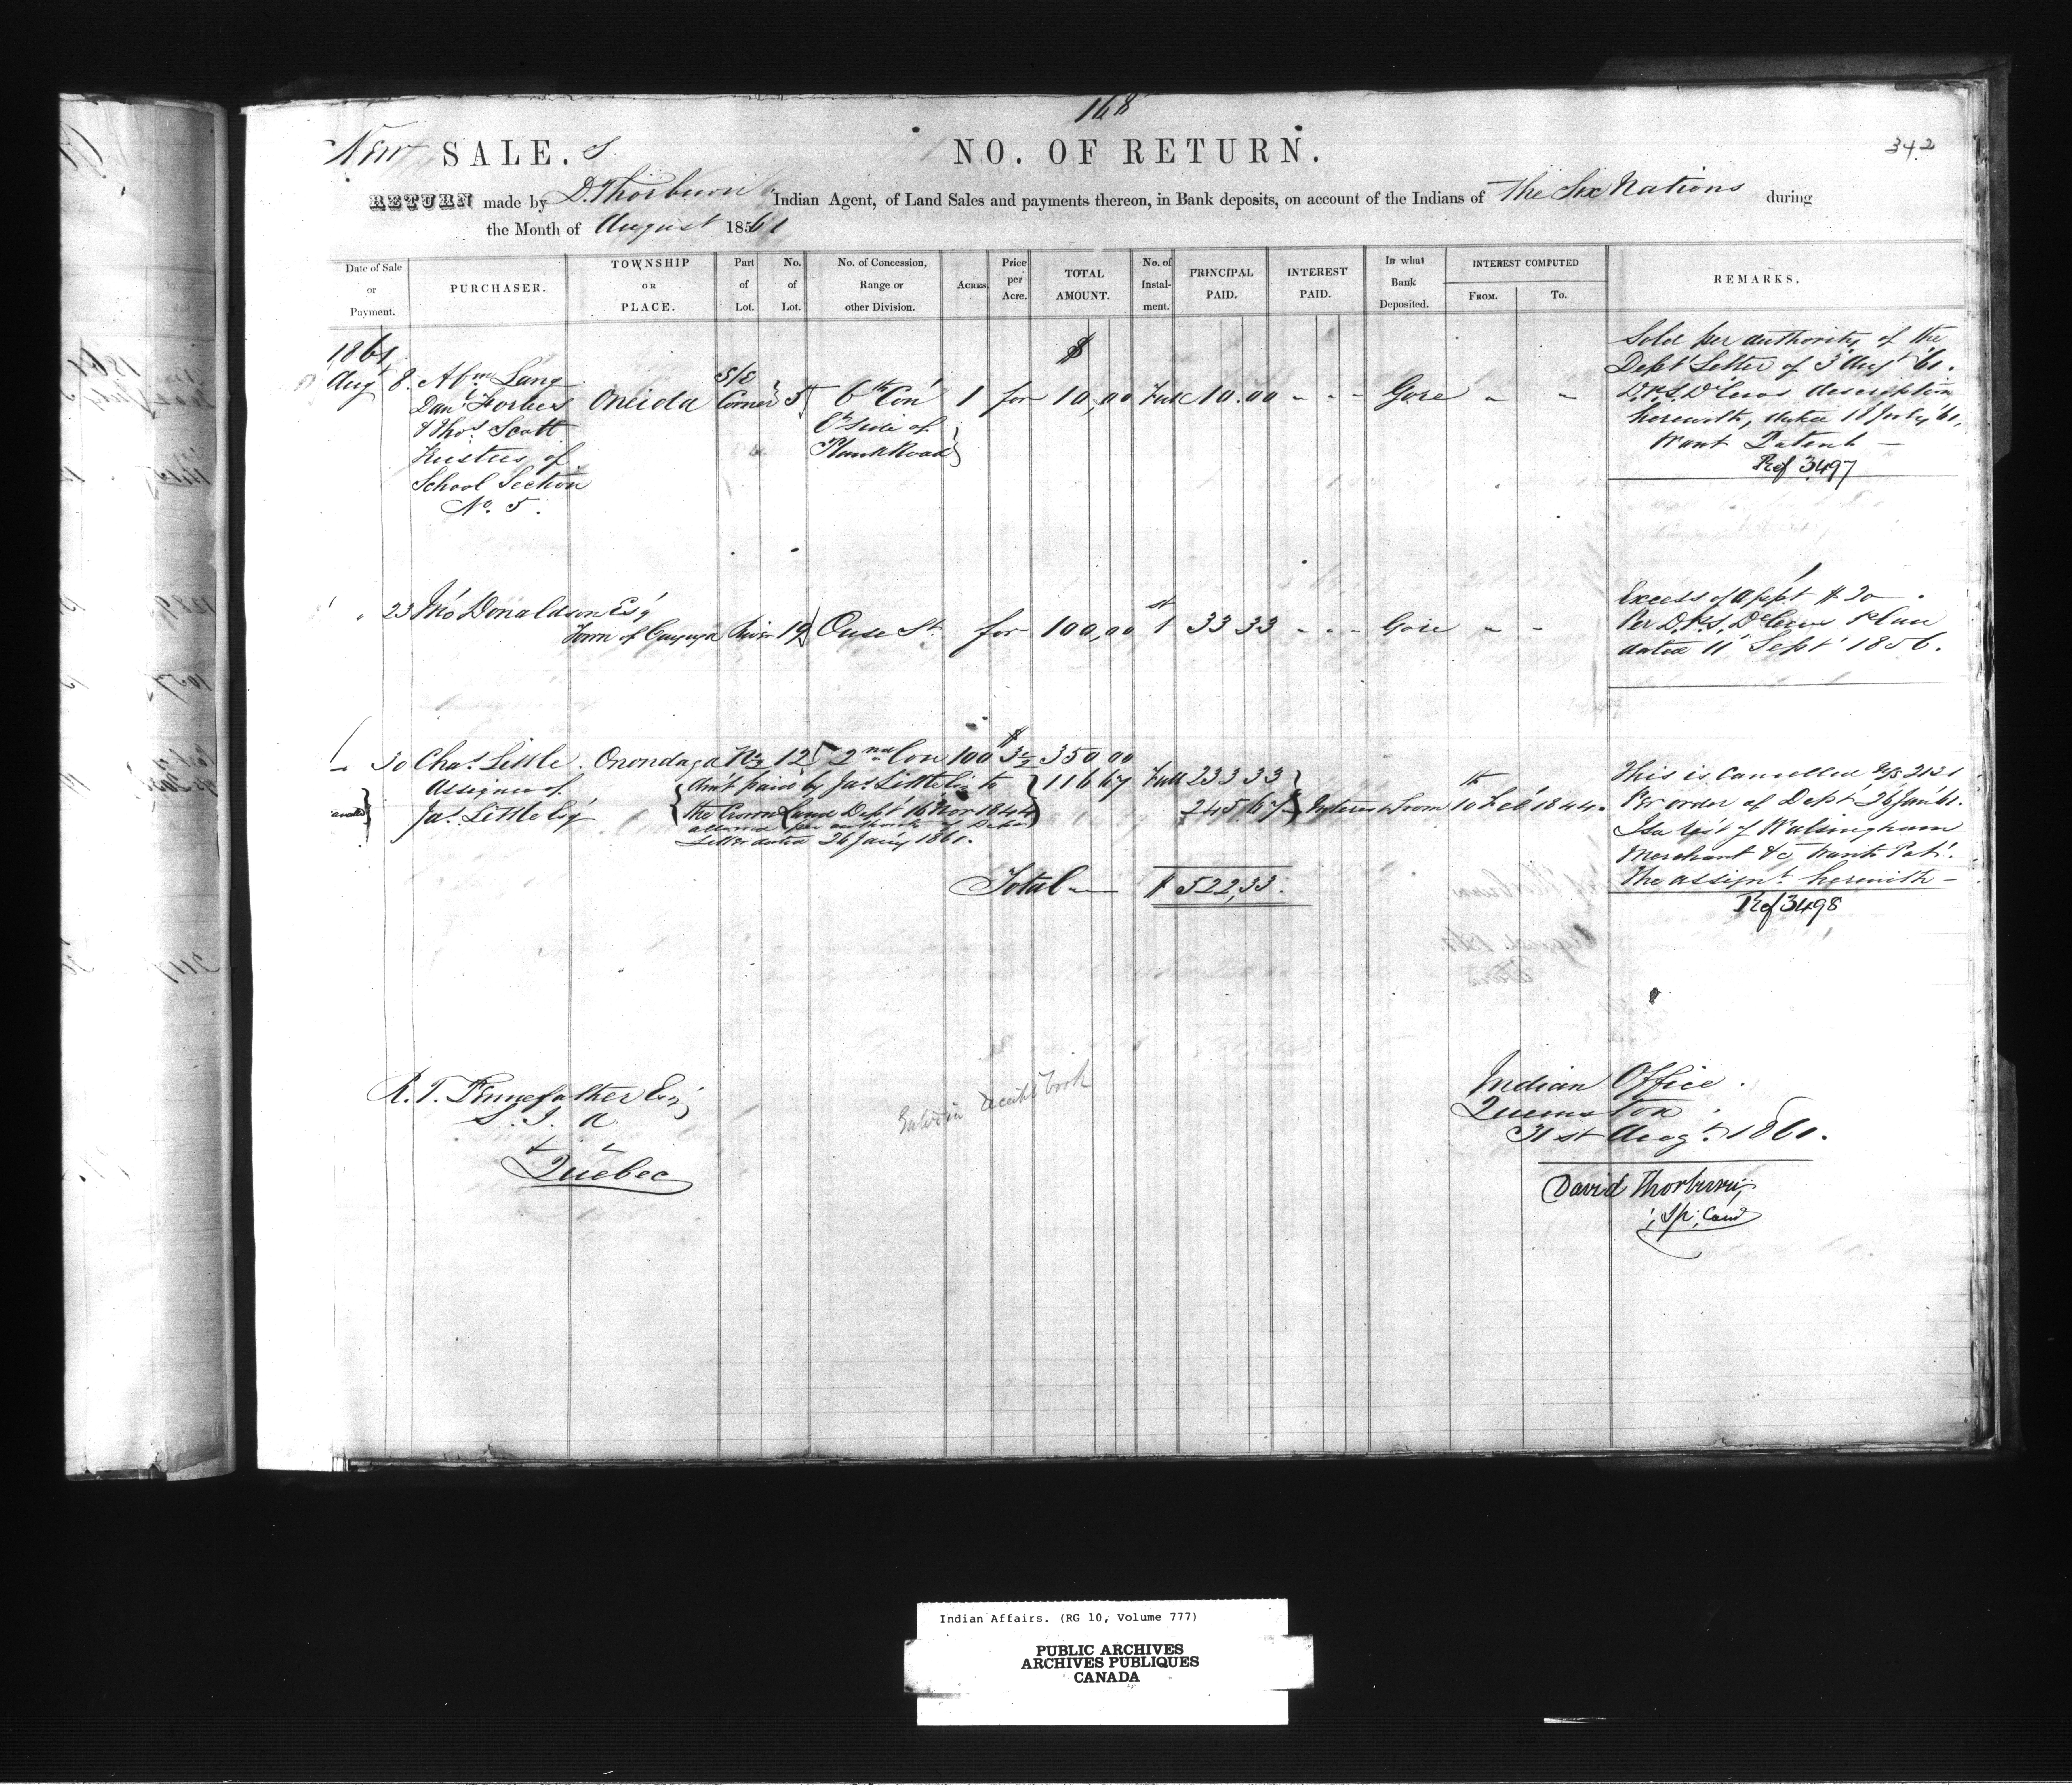 168
New SALE.s NO. OF RETURN. 342
RETURN made by D. Thorburn Indian Agent, of Land Sales and payments thereon, in Bank deposits, on account of the Indians of The Six Nations during
the Month of August 1861
Date of Sale or Payment. PURCHASER. TOWNSHIP OR PLACE. Part of Lot. No. of Lot. No. of Concession, Range or other Division. ACRES. Price per Acre. TOTAL AMOUNT. No. of Instalment. PRINCIPAL PAID. INTEREST PAID. In what Bank Deposited. INTEREST COMPUTED FROM. TO. REMARKS.
1861 $ Sold per authority of the
Dept Letter of 3 Aug '61.
Augt 8. Abm Lang
Dan'l Forbes Oneida S/E Corner 5 6th Con 1 for 10,00 Full 10.00 - - - Gore " " description
& Thos. Scott E side of herewith,
Trustees of Plank Road Want Patent —
School Section Ref 3497
No. 5.
" 23 Jno Donaldson Esq Excess of $ 20
Town of Cayuga River 19 Ouse St. for 100,00 1st 33 33 - - - Gore " " Per D.P.S. Plan
dated 11 Sept 1856.
" 30 Chas. Little Onondaga N½ 12 2nd Con 100 $3½ 350 00
Assignee of Am't paid by Jas. Little Esq to 116 67 Full 233 33 This is Cancelled 2131
Jas. Little Esq the Crown Land Dept 16 Nov 1844 245 67 Interest from 10th Feb 1844. Per order of Dept 26 Jan '61.
allowed per authority of Dept of Walsingham
Letter dated 26 Jany 1861. Merchant &c, wants Pat.
Total — $ 522,33. The assignt. herewith —
Ref 3498
R. T. Pennefather Esq Indian Office.
S. I. A Brantford
31st Augt. 1861.
Quebec
David Thorburn,
Sp. Com
Indian Affairs. (RG 10, Volume 777)
PUBLIC ARCHIVES
ARCHIVES PUBLIQUES
CANADA